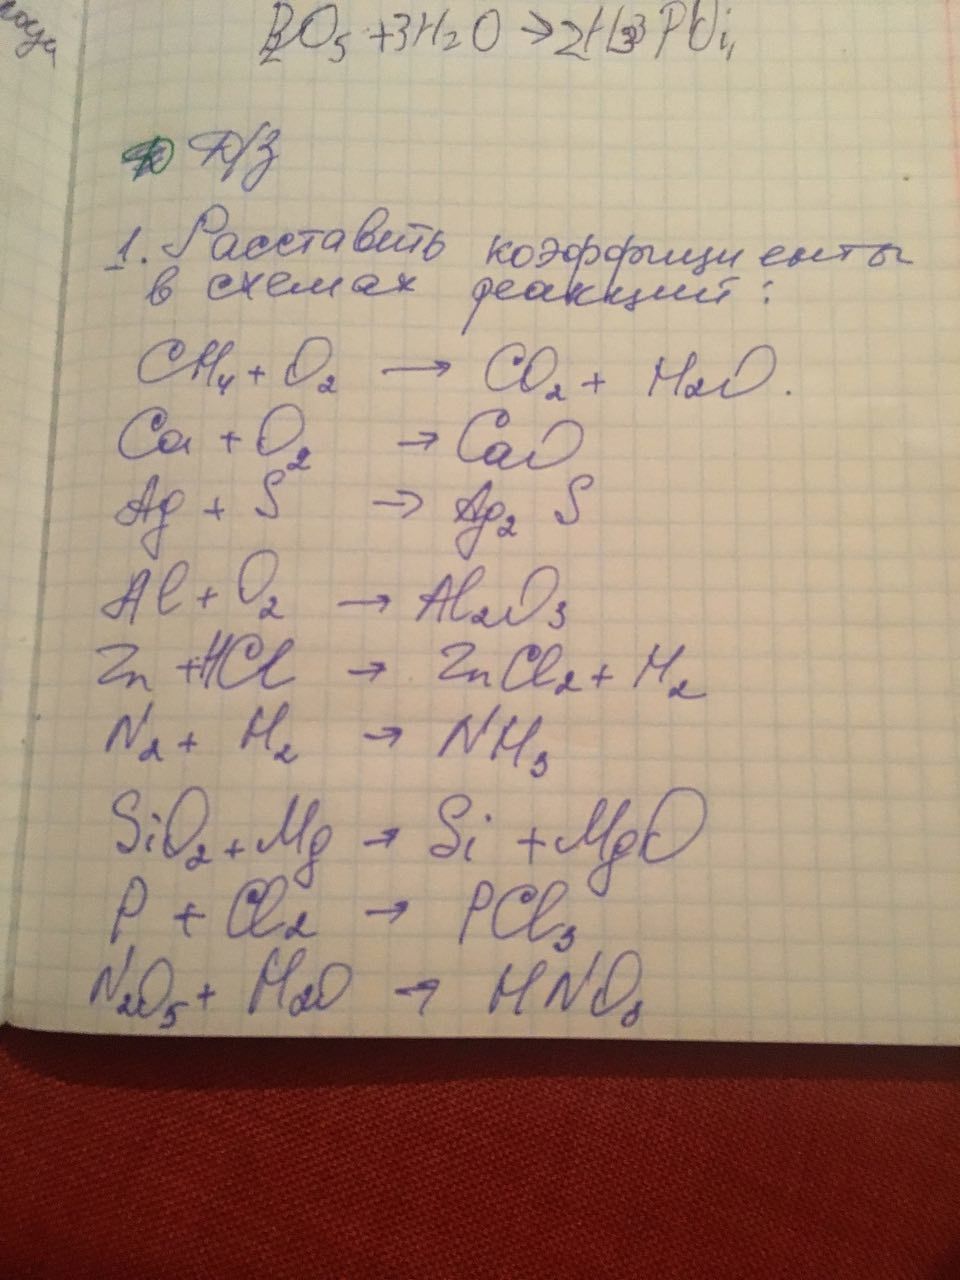 P₂O₅ + 3H₂O → 2H₃PO₄
Д/З
1. Расставить коэффициенты
в схемах реакций:
CH₄ + O₂ → CO₂ + H₂O.
Ca + O₂ → CaO
Ag + S → Ag₂S
Al + O₂ → Al₂O₃
Zn + HCl → ZnCl₂ + H₂
N₂ + H₂ → NH₃
SiO₂ + Mg → Si + MgO
P + Cl₂ → PCl₃
N₂O₅ + H₂O → HNO₃